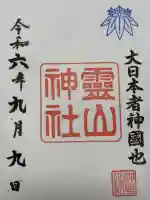 大日本者神國也
靈山神社
令和六年九月九日